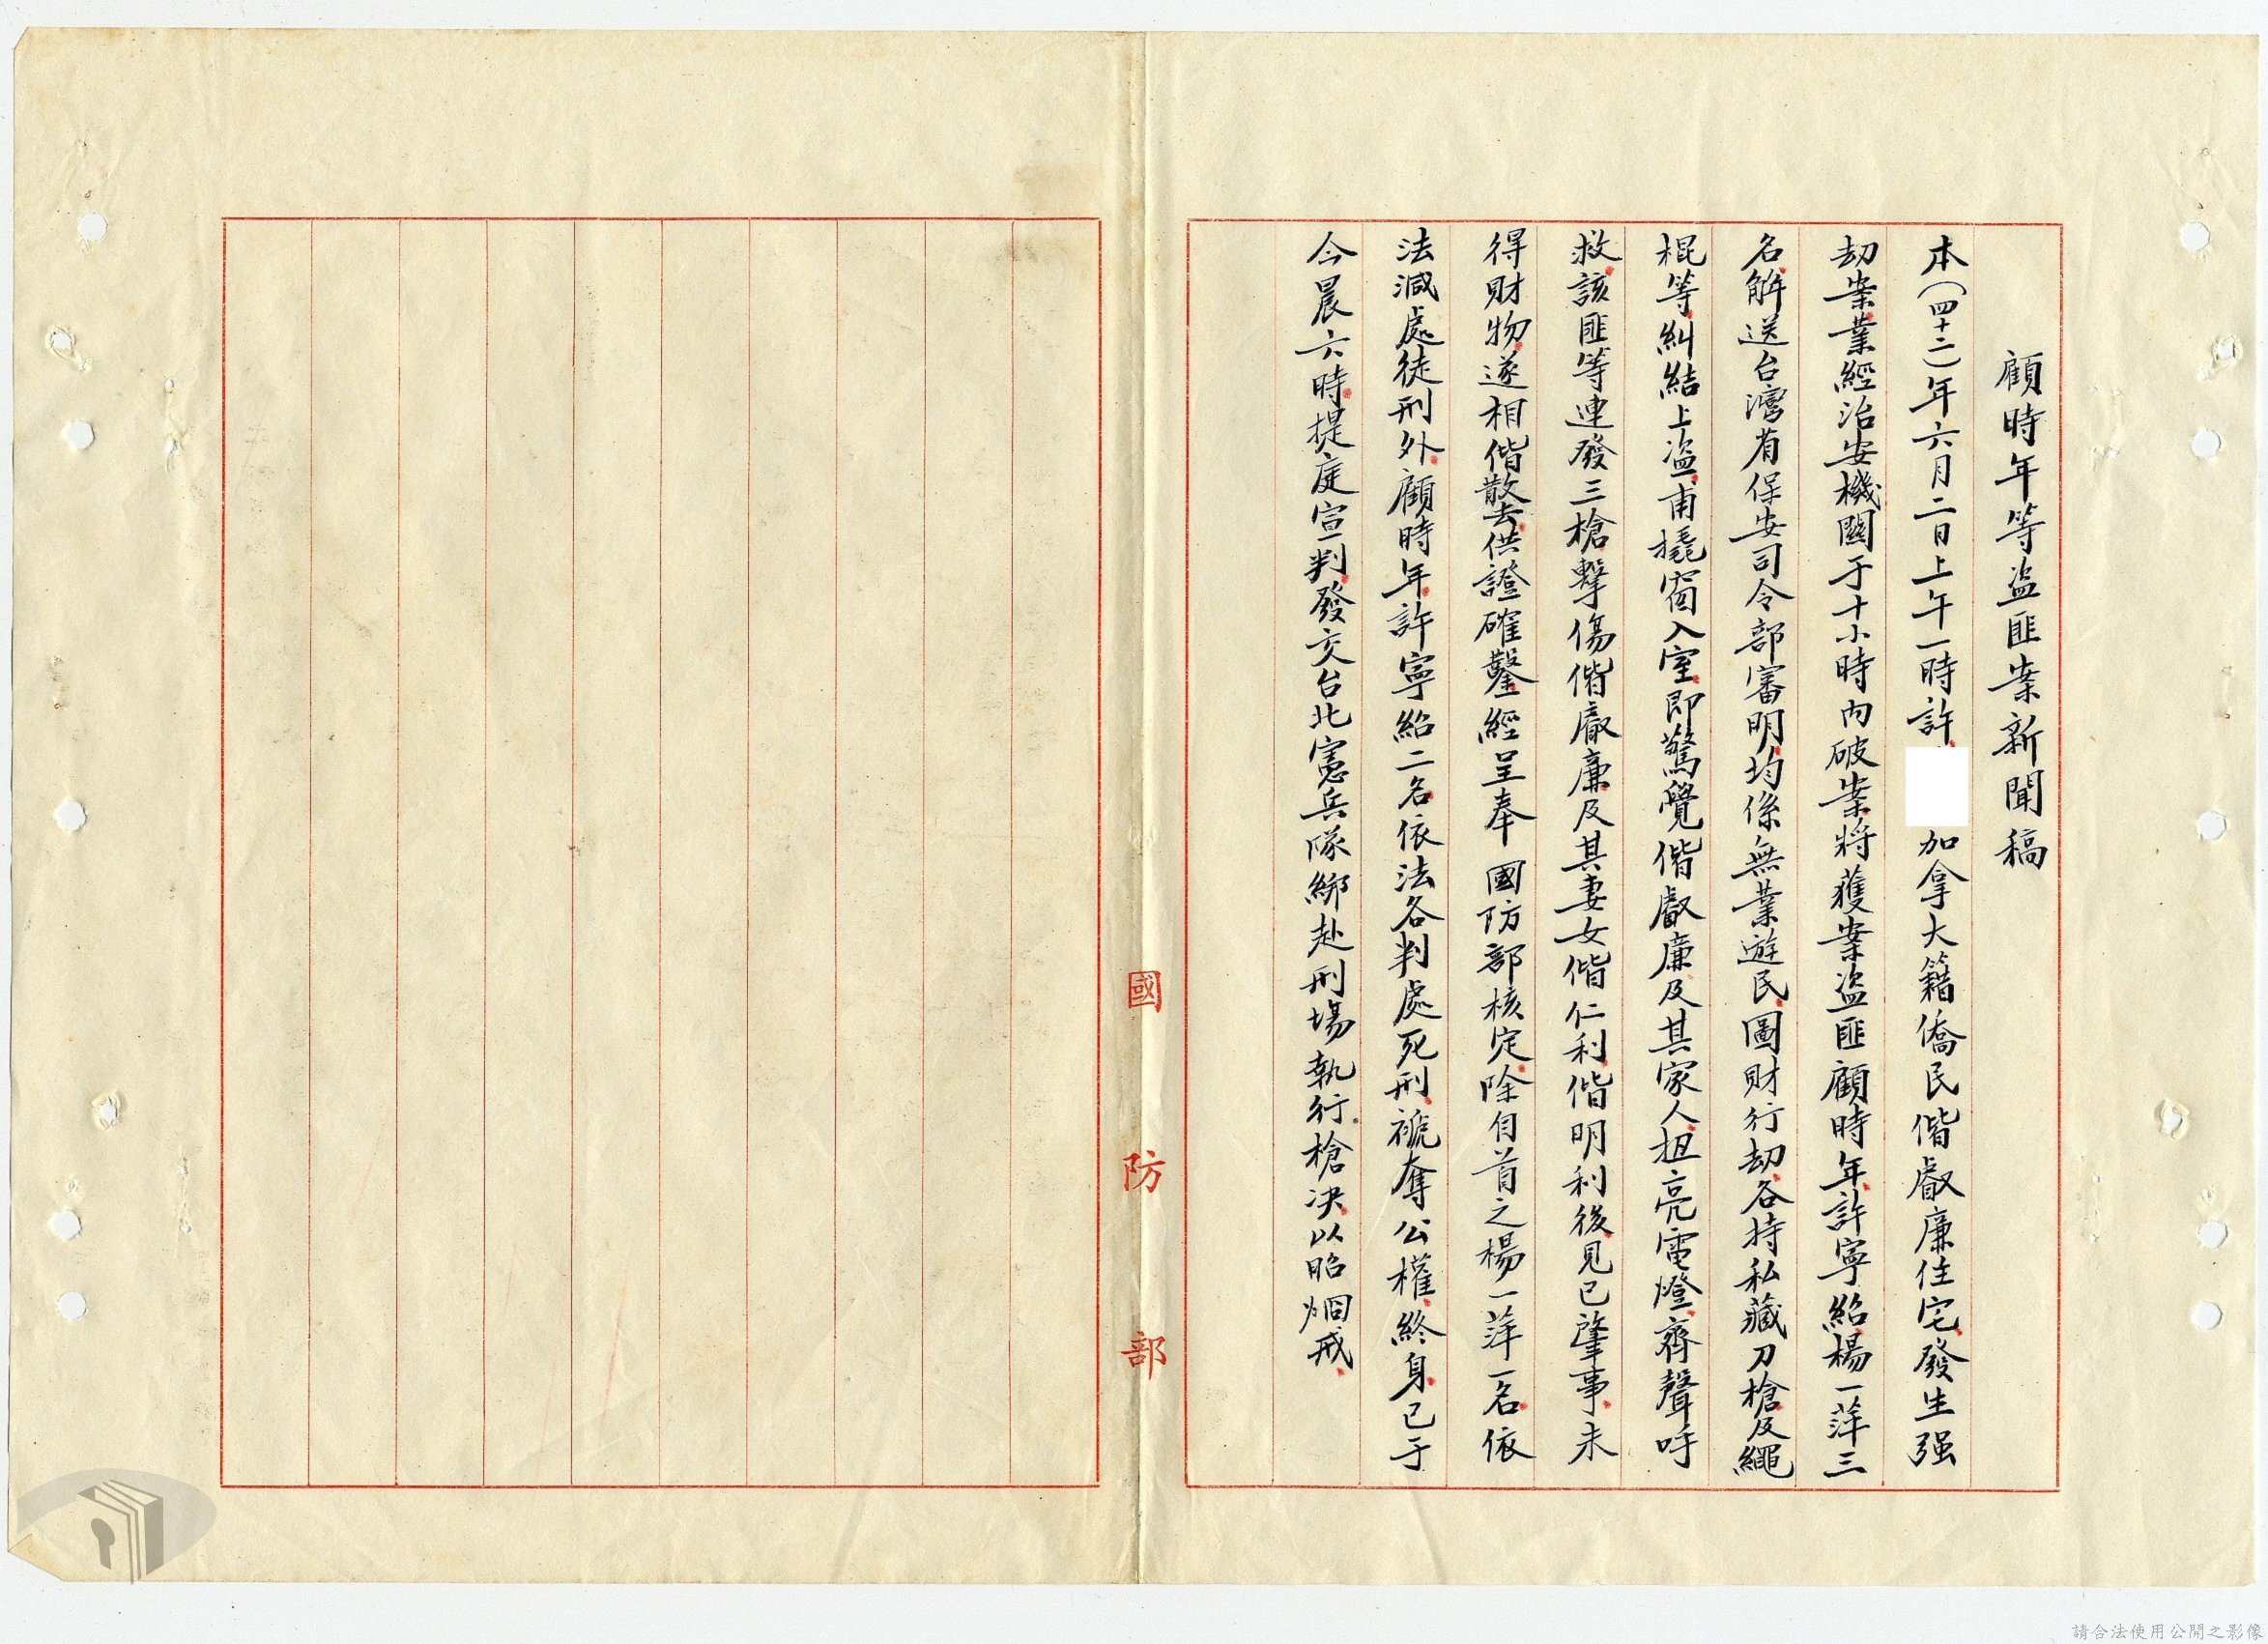 顧時年等盜匪案新聞稿
本(四十二)年六月二日上午一時許、加拿大籍僑民偕叡廉住宅、發生强
劫案業經治安機關于十小時內破案、將獲案盜匪顧時年、許寧紹、楊一萍三
名、解送台灣省保安司令部審明、均係無業遊民、圖財行劫、各持私藏刀槍及繩
棍等、糾結上盜、甫撬窗入室、即驚覺偕叡廉、及其家人、扭亮電燈、齊聲呼
救、該匪等連發三槍、擊傷偕叡廉、及其妻女偕仁利、偕明利後、見已肇事、未
得財物、遂相偕散去、供證確鑿、經呈奉 國防部核定、除自首之楊一萍一名、依
法減處徒刑外、顧時年、許寧紹二名、依法各判處死刑、褫奪公權、終身、已于
今晨六時、提庭宣判、發交台北憲兵隊綁赴刑場執行槍決、以昭烱戒、
國防部
請合法使用公開之影像